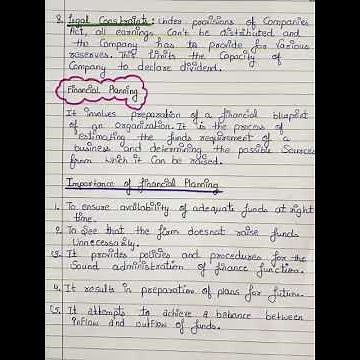 8. Legal Constraints: Under provisions of Companies
Act, all earnings Can't be distributed and
the Company has to provide for various
reserves. This limits the Capacity of
Company to declare dividend.
Financial Planning
It involves preparation of a financial blueprint
of an organization. It is the process of
estimating the funds requirement of a
business and determining the possible Sources
from which it Can be raised.
Importance of financial Planning
1. To ensure availability of adequate funds at right
time.
2. To See that the firm doesnot raise funds
Unnecessarily.
3. It provides policies and procedures for the
Sound administration of finance function.
4. It results in preparation of plans for future.
5. It attempts to achieve a balance between
inflow and outflow of funds.